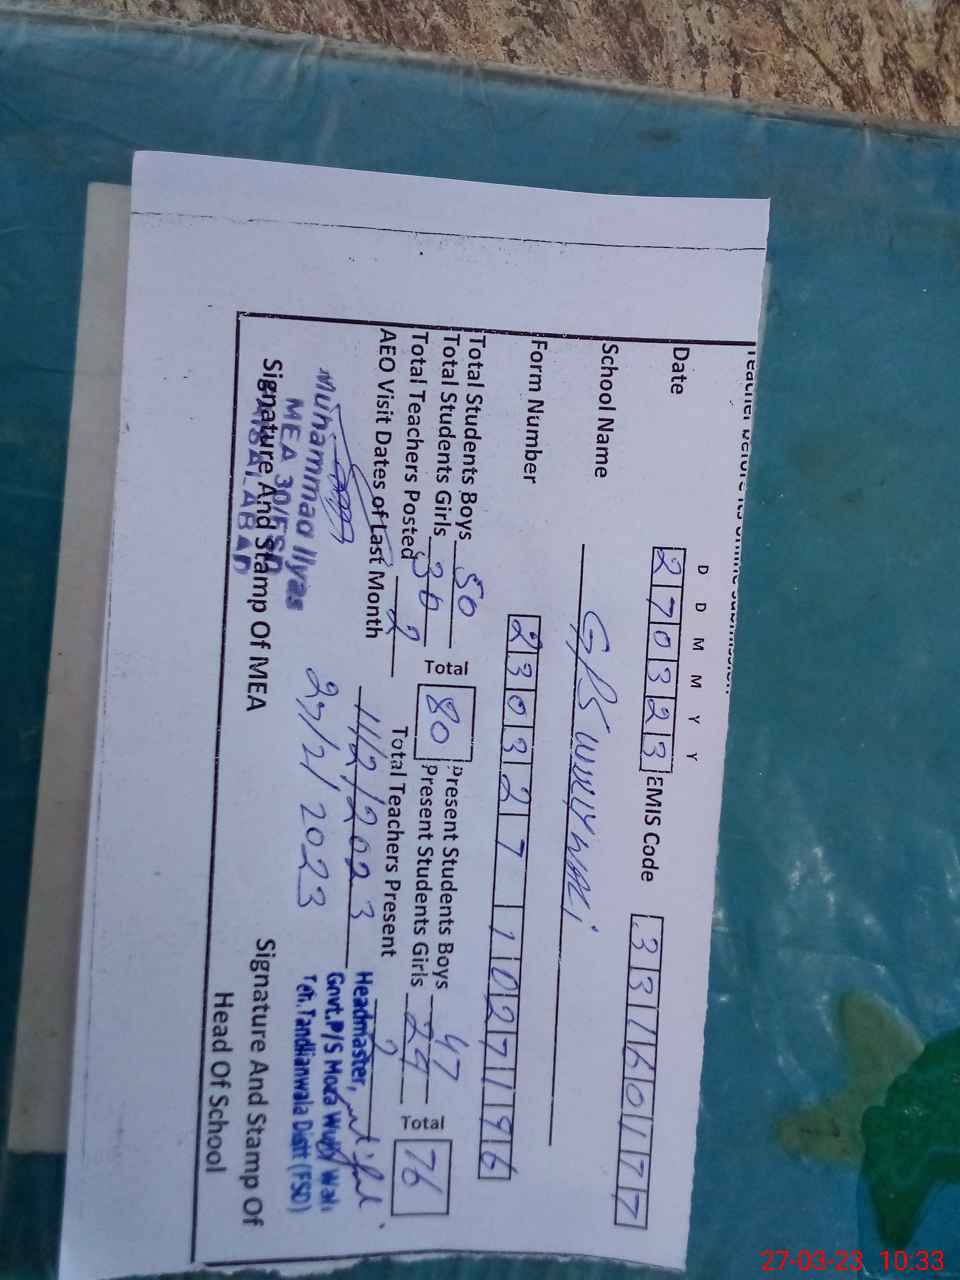 Teacher before its online submission.
D D M M Y Y
Date 270323 EMIS Code 33160177
School Name GPS
Form Number 2303271027196
Total Students Boys 50 Total 80 Present Students Boys 47 Total 76
Total Students Girls 30 Present Students Girls 29
Total Teachers Posted 2 Total Teachers Present 2
AEO Visit Dates of Last Month 11/2/2023
Muhammad Ilyas
MEA 30/FSD
FAISALABAD
27/2/2023
Headmaster,
Govt.P/S Moza
Teh.Tandlianwala Distt (FSD)
Signature And Stamp Of MEA
Signature And Stamp Of
Head Of School
27-03-23 10:33